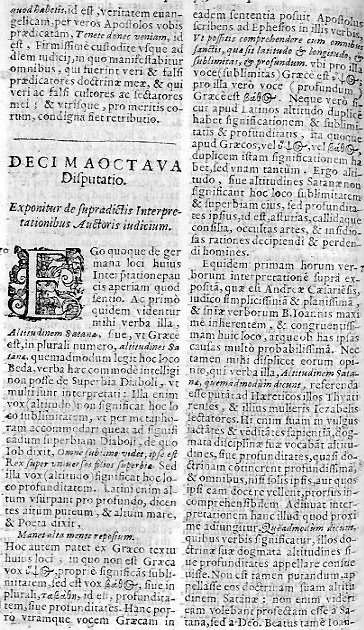 quod habetis, id est, veritatem euan-
gelicam, per veros Apostolos vobis
prædicatam, Tenete donec veniam, id
est, Firmissimè custodite vsque ad
diem iudicij, in quo manifestabitur
omnibus, qui fuerint veri & falsi
prædicatores doctrinæ meæ, & qui
veri ac falsi cultores ac sectatores
mei; & vtrisque, pro meritis eo-
rum, condigna fiet retributio.
DECIMAOCTAVA
Disputatio.
Exponitur de supradictis Interpre-
tationibus Auctoris iudicium.
EGo quoque de ger
mana loci huius
Interpretatione pau
cis aperiam quod
sentio. Ac primò
quidem videntur
mihi verba illa,
Altitudinem Satanæ, siue, vt Græcè
est, in plurali numero, altitudines Sa
tanæ, quemadmodum legit hoc loco
Beda, verba hæc commodè intelligi
non posse de Superbia Diaboli, vt
multi sunt interpretati: Illa enim
vox (altitudo) non significat hoc lo
co sublimitatem, vt per metapho-
ram accommodari queat ad signifi
candum superbiam Diaboli, de quo
Iob dixit, Omne sublime videt, ipse est
Rex super vniuersos filios superbiæ. Sed
illa vox (altitudo) significat hoc lo
co profunditatem. Latini enim al-
tum vsurpant pro profundo, dicen
tes altum puteum, & altum mare,
& Poëta dixit,
Manet alta mente repostum.
Hoc autem patet ex Græco textu
huius loci, in quo non est Græca
vox ὕψ@, propriè significás subli-
mitatem, sed est vox βάθ@, siue in
plurali, τα βάθη, id est, profundita-
tem, siue profunditates. Hanc por-
ro vtramque vocem Græcam in
eadem sententia posuit Apostolus
scribens ad Ephesios in illis verbis,
Vt possitis comprehendere cum omnibus
sanctis, quæ sit latitudo & longitudo, &
sublimitas, & profundum. vbi pro illa
voce (sublimitas) Græcè est, ὕψ@,
pro illa verò voce (profundum)
Græcè est βάθ@. Neque verò si-
cut apud Latinos altitudo duplicē
habet significationem & sublimi-
tatis & profunditatis, ita quoque
apud Græcos, vel ὕψ@, vel βάθ@,
duplicem istam significationem ha
bet, sed vnam tantum. Ergo alti-
tudo, siue altitudines Satanæ non
significant hoc loco sublimitatem
& superbiam eius, sed profundita
tes ipsius, id est, astutias, callidaque
consilia, occultas artes, & insidio-
sas rationes decipiendi & perden-
di homines.
Equidem primam horum ver-
borum interpretationē suprà ex-
positā, quæ est Andreæ Cæsariēsis,
iudico simplicissimā & planissimā,
& sniæ verborum B. Ioannis maxi
mè inherentem, & congruentissi-
mam huic loco, atque ob has ipsas
causas multò probabilissimā. Nec
tamen mihi displicet eorum opi-
nio, qui verba illa, Altitudinem Sata-
næ, quemadmodum dicunt, referenda
esse putāt ad Hæreticos illos Thyati
renses, & illius mulieris Iezabelis
sectatores. Hi enim suam in vulgus
iactātes & vēditātes sapiētiā, dog-
mata disciplinæ suæ vocabāt altitu-
dines, siue profunditates, quasi do-
ctrinam cōtinerent profundissimā,
& omnibus, nisi solis ipsis, aut quos
ipsi eam docere vellent, prorsus in-
comprehensibilem. Adiuuat inter-
pretationem hanc illud quod proxi
mè adiungitur, Quemadmodum dicunt,
quibus verbis significatur, illos do-
ctrinæ suæ dogmata altitudines si-
ue profunditates appellare consue
uisse. Non est tamen putandum, ap-
pellasse eos doctrinam suam altitu
dinem Satanæ: non enim videri
eam volebant profectam esse à Sa-
tana, sed à Deo. Beatus tamē Ioan-